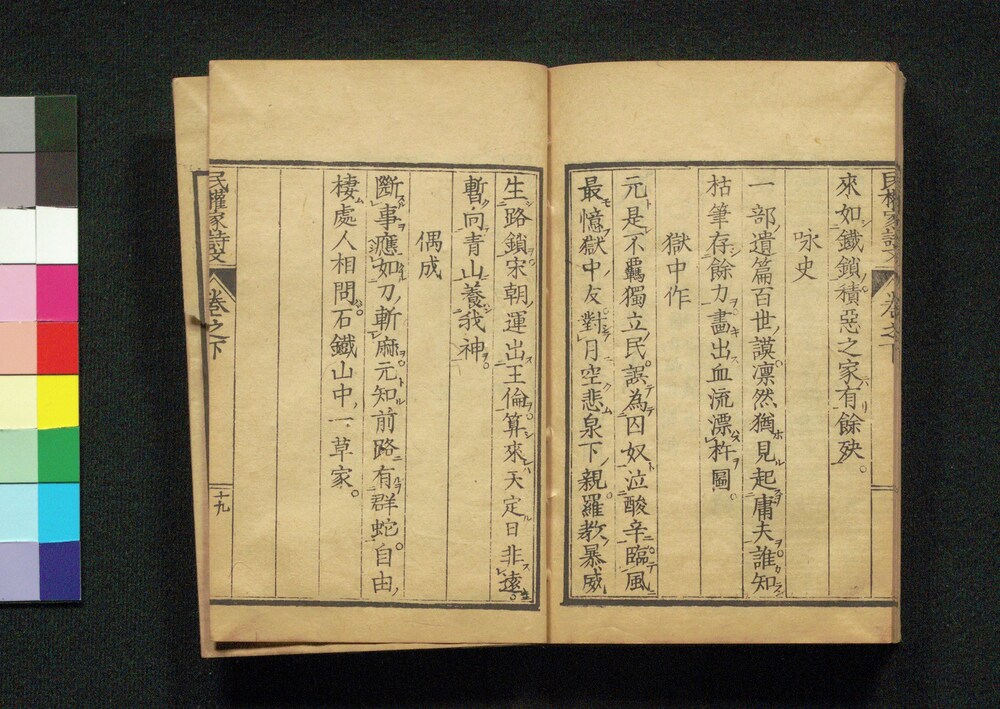 來如鐵鎖積惡之家有餘殃。
咏史
一部遺篇百世謨凛然猶見起庸夫誰知
枯筆存餘力畫出血流漂杵圖。
獄中作
元是不羈獨立民。誤為囚奴泣酸辛臨風
最憶獄中友對月空悲泉下親羅教暴威
民權家詩文
卷之下
生路鎖宋朝運出王倫算來天定日非遠。
暫向青山養我神。
偶成
斷事應如刀斬麻元知前路有群蛇。自由
棲處人相問。石鐵山中一草家。
民權家詩文
卷之下
十九